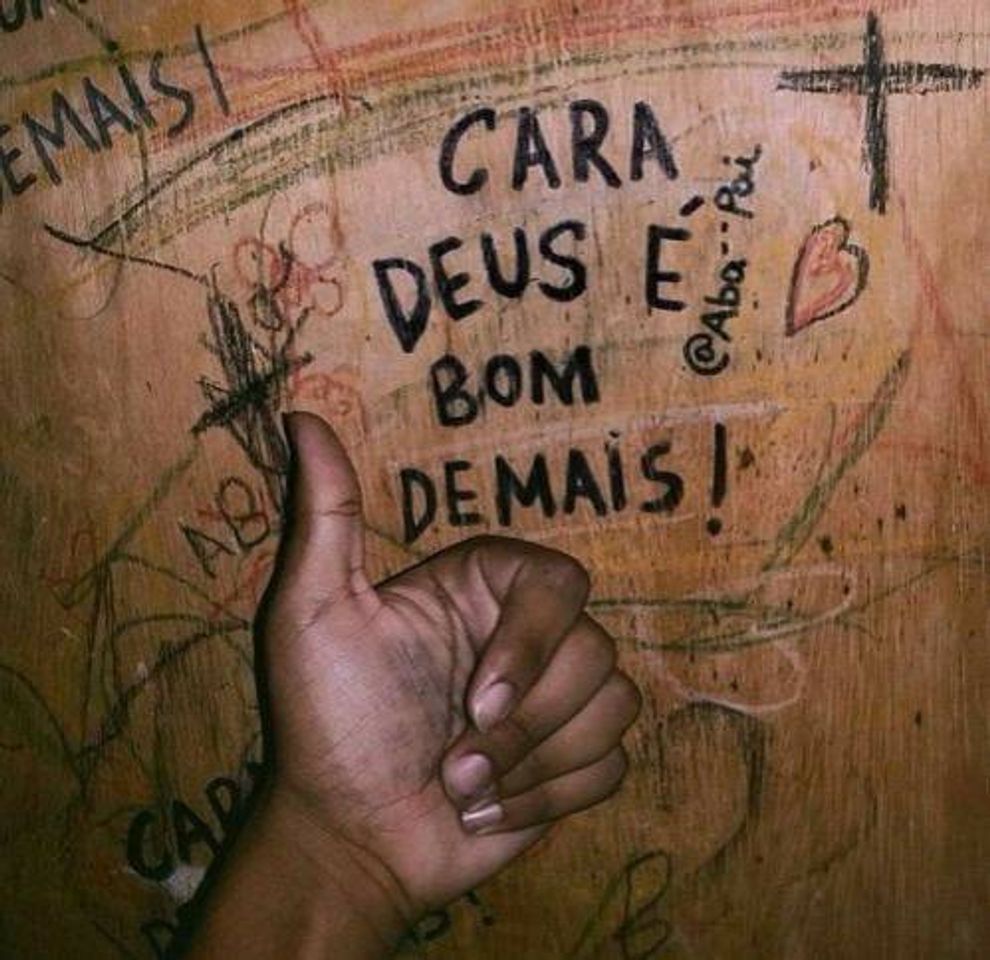 EMAIS!
CARA
DEUS É
BOM
DEMAIS!
@Aba--Pai
AB
CAR